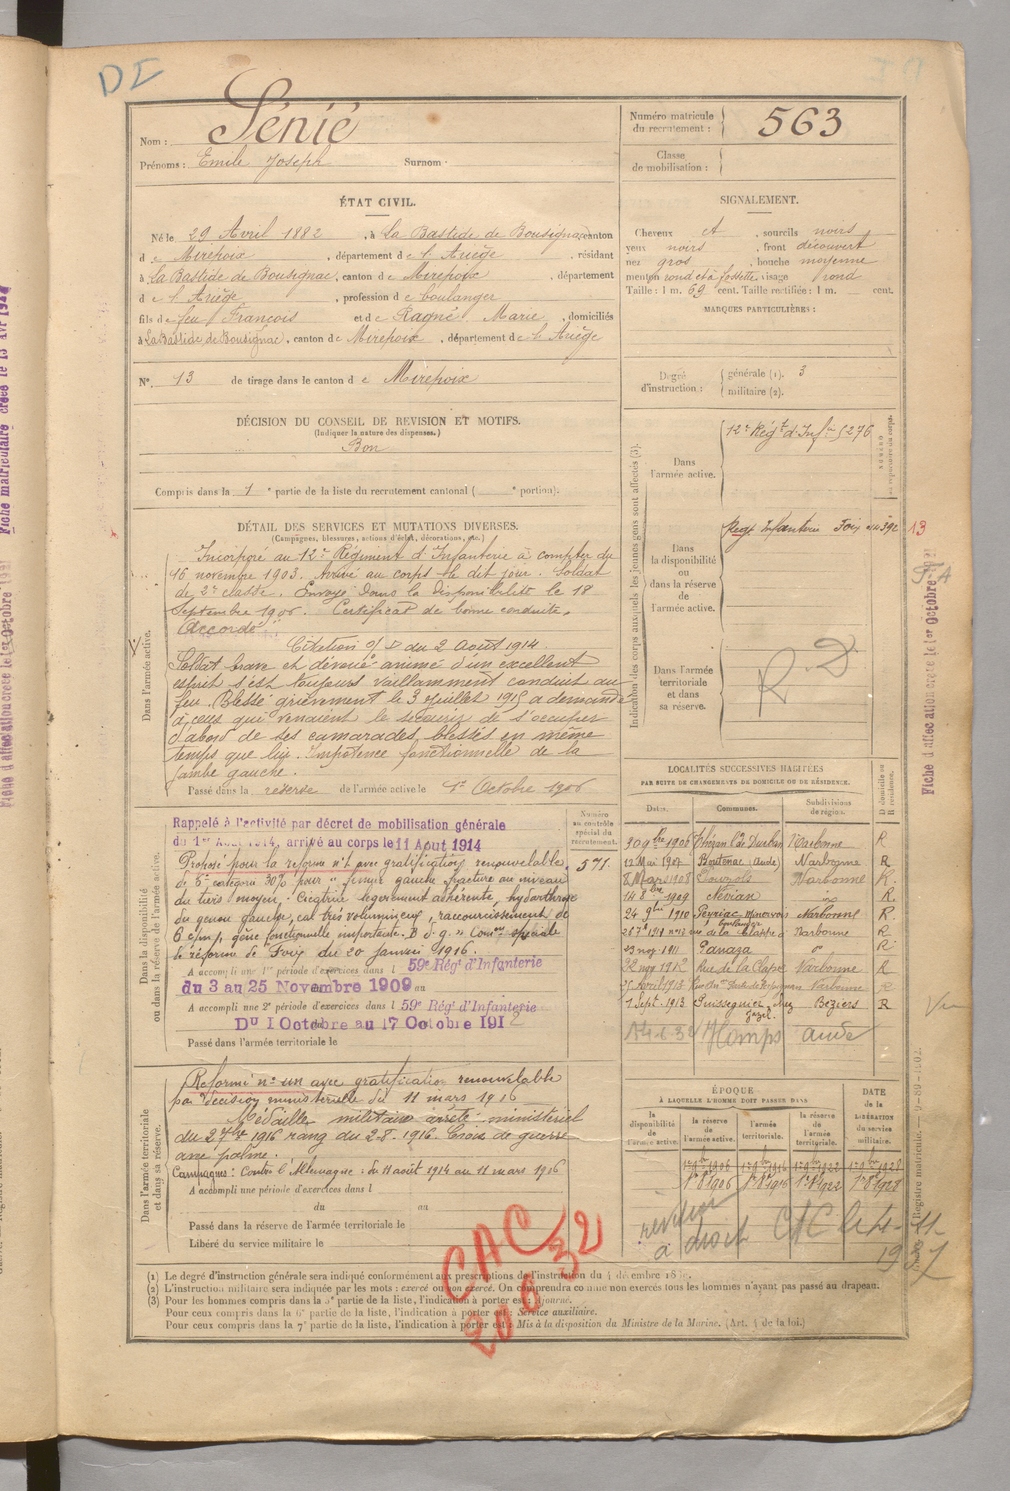 DI
Nom : Sénié
Prénoms : Emile Joseph Surnom :
Numéro matricule du recrutement : 563
Classe de mobilisation :
ÉTAT CIVIL.
Né le 29 Avril 1882, à La Bastide de Bousignac, canton
de Mirepoix, département de l'Ariège, résidant
à La Bastide de Bousignac, canton de Mirepoix, département
de l'Ariège, profession de boulanger
fils de feu François et de Ragné Marie, domiciliés
à La Bastide de Bousignac, canton de Mirepoix, département de l'Ariège
SIGNALEMENT.
Cheveux et, sourcils noirs
yeux noirs, front découvert
nez gros, bouche moyenne
menton rond et à fossette, visage rond
Taille : 1 m. 69 cent. Taille rectifiée : 1 m. cent.
MARQUES PARTICULIÈRES :
N° 13 de tirage dans le canton de Mirepoix
Degré d'instruction : générale (1). 3
militaire (2).
DÉCISION DU CONSEIL DE REVISION ET MOTIFS.
(Indiquer la nature des dispenses.)
Bon
Compris dans la 1e partie de la liste du recrutement cantonal ( e portion).
Indication des corps auxquels les jeunes gens sont affectés (3).
Dans l'armée active.
12e Régt d'Infie 5276
Dans la disponibilité ou dans la réserve de l'armée active.
Regt Infanterie Foix 392
13
Dans l'armée territoriale et dans sa réserve.
R. D.
DÉTAIL DES SERVICES ET MUTATIONS DIVERSES.
(Campagnes, blessures, actions d'éclat, décorations, etc.)
Dans l'armée active.
Incorporé au 12e Régiment d'Infanterie à compter du
16 novembre 1903. Arrivé au corps le dit jour. Soldat
de 2e classe. Envoyé dans la disponibilité le 18
Septembre 1906. Certificat de bonne conduite
Accordé
Citation du 2 Août 1914.
Soldat brave et dévoué animé d'un excellent
esprit s'est toujours vaillamment conduit au
feu. Blessé grièvement le 3 Juillet 1915 a demandé
à ceux qui venaient le secourir de s'occuper
d'abord de ses camarades blessés en même
temps que lui. Impotence fonctionnelle de la
jambe gauche.
Passé dans la réserve de l'armée active le 1er Octobre 1906
Dans la disponibilité ou dans la réserve de l'armée active.
Numéro au contrôle spécial du recrutement.
571.
Rappelé à l'activité par décret de mobilisation générale
du 1er Août 1914, arrivé au corps le 11 Aout 1914
Proposé pour la réforme n°1 avec gratification renouvelable
de 5e catégorie 30% pour "femur gauche fracture au niveau
du tiers moyen, Cicatrice legerement adhérente, hydarthrose
du genou gauche, cal très volumineux, raccourcissement de
6 c/m, gêne fonctionnelle importante. B d g" Comon spéciale
de réforme de Foix du 20 janvier 1916.
A accompli une 1re période d'exercices dans l 59e Régt d'Infanterie
du 3 au 25 Novembre 1909
A accompli une 2e période d'exercices dans l 59e Régt d'Infanterie
Du 1 Octobre au 17 Octobre 191
Passé dans l'armée territoriale le
LOCALITÉS SUCCESSIVES HABITÉES
PAR SUITE DE CHANGEMENTS DE DOMICILE OU DE RÉSIDENCE.
Dates. Communes. Subdivisions de région. D domicile ou R résidence.
30 9bre 1906 Thézan Narbonne R
12 Mai 1907 Boutenac (Aude) Narbonne R
8 Mars 1908 Narbonne R
14 8bre 1909 Névian R
24 9bre 1910 Peyriac Minervois Narbonne R
Narbonne R
23 nov 1911
22 nov 1912 Rue de la Clape Narbonne R
25 Avril 1913 Narbonne R
1 Sept. 1913 Puisserguier chez Beziers R
14 6 32 Homps Aude
Dans l'armée territoriale et dans sa réserve.
Réformé n° un avec gratification renouvelable
par décision ministerielle du 11 mars 1916
Médaille militaire arrêté ministériel
du 2 7bre 1916 rang du 2.8.1916. Croix de guerre
avec palme.
Campagnes : Contre l'Allemagne : du 11 août 1914 au 11 mars 1916
A accompli une période d'exercices dans l
du au
Passé dans la réserve de l'armée territoriale le
Libéré du service militaire le
ÉPOQUE
À LAQUELLE L'HOMME DOIT PASSER DANS
la disponibilité de l'armée active. la réserve de l'armée active. l'armée territoriale. la réserve de l'armée territoriale.
DATE de la LIBÉRATION du service militaire.
1er 8bre 1906 1er 8bre 1916 1er 8bre 1922 1er 8bre 1928
révision à droit CAC le 4-11-1937
CAC 20 6 32
(1) Le degré d'instruction générale sera indiqué conformément aux prescriptions de l'instruction du 4 décembre 18
(2) L'instruction militaire sera indiquée par les mots : exercé ou non exercé. On comprendra comme non exercés tous les hommes n'ayant pas passé au drapeau.
(3) Pour les hommes compris dans la 5e partie de la liste, l'indication à porter est : Ajourné.
Pour ceux compris dans la 6e partie de la liste, l'indication à porter est : Service auxiliaire.
Pour ceux compris dans la 7e partie de la liste, l'indication à porter est : Mis à la disposition du Ministre de la Marine. (Art. 4 de la loi.)